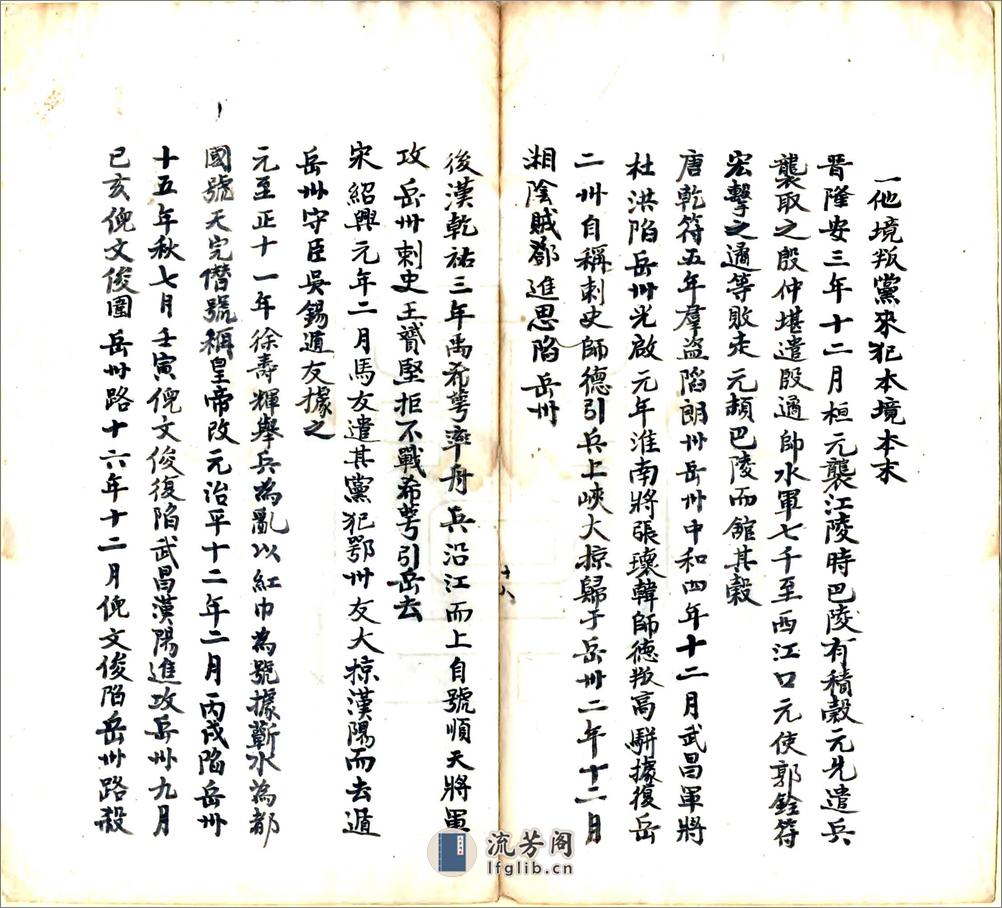 一他境叛黨來犯本境本末
晉隆安三年十二月桓元襲江陵時巴陵有積穀元先遣兵
襲取之殷仲堪遣殷遹帥水軍七千至西江口元使郭銓符
宏擊之遹等敗走元頓巴陵而館其穀
唐乾符五年羣盜陷朗州岳州中和四年十二月武昌軍將
杜洪陷岳州光啟元年淮南將張瓌韓師德叛高駢據復岳
二州自稱刺史師德引兵上峽大掠歸于岳州二年十二月
湘陰賊鄧進思陷岳州
十八
後漢乾祐三年馬希萼率舟兵沿江而上自號順天將軍
攻岳州刺史王贇堅拒不戰希萼引岳去
宋紹興元年二月馬友遣其黨犯鄂州友大掠漢陽而去遁
岳州守臣吳錫遁友據之
元至正十一年徐壽輝舉兵為亂以紅巾為號據蘄水為都
國號天完僭號稱皇帝改元治平十二年二月丙戌陷岳州
十五年秋七月壬寅倪文俊復陷武昌漢陽進攻岳州九月
己亥倪文俊圍岳州路十六年十二月倪文俊陷岳州路殺
流芳阁
lfglib.cn